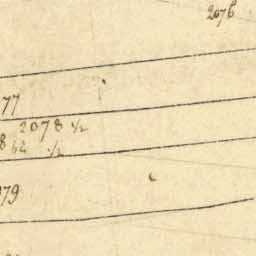 2076
77
2078 ½
½
079